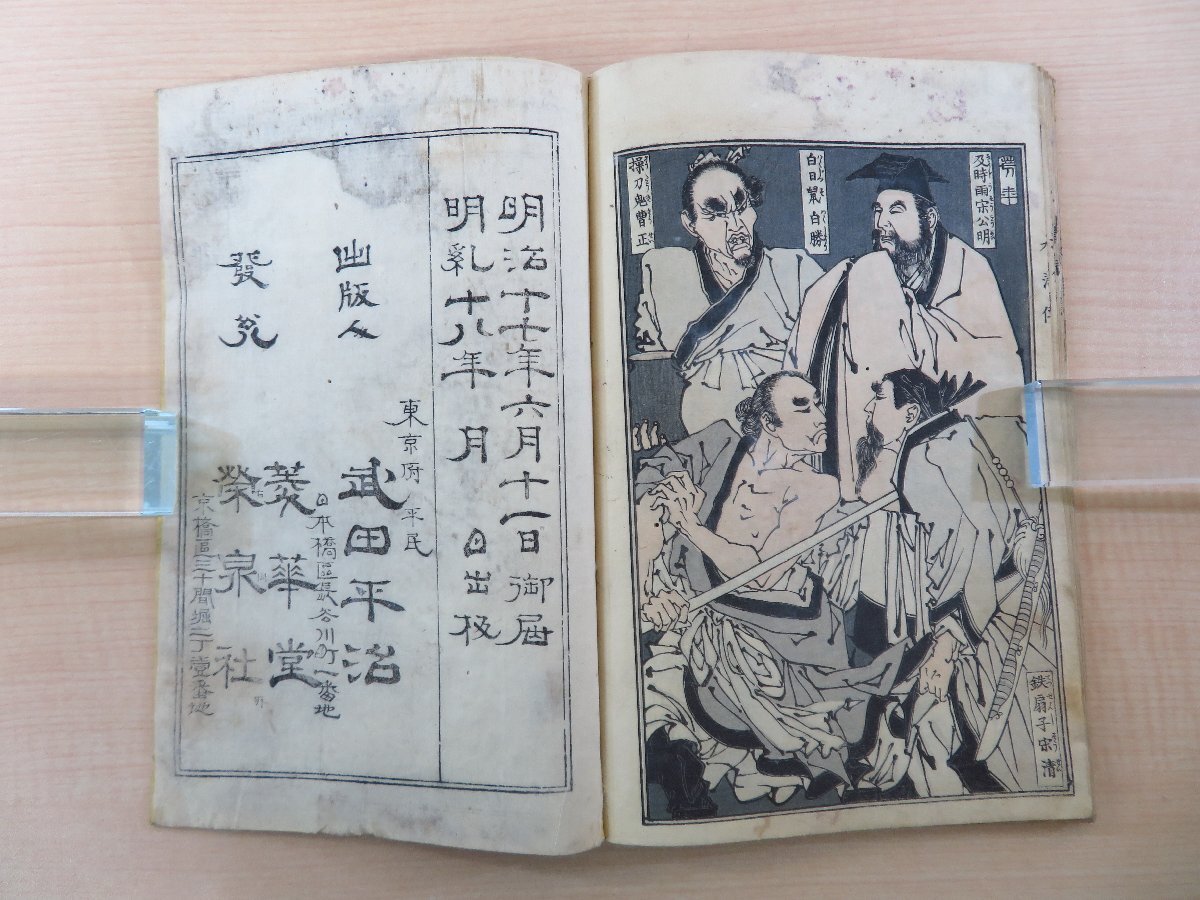 及時雨宋公明
白日鼠 白勝
操刀鬼曹正
鉄扇子宋清
明治十七年六月十一日御届
明治十八年 月 日出板
東京府平民
出版人 武田平治
日本橋區長谷川町一番地
發兌 菱華堂
榮泉社
京橋區三十間堀二丁壹番地